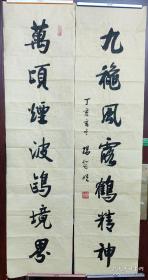 九穐風露鶴精神
丁亥
萬頃煙波鷗境界